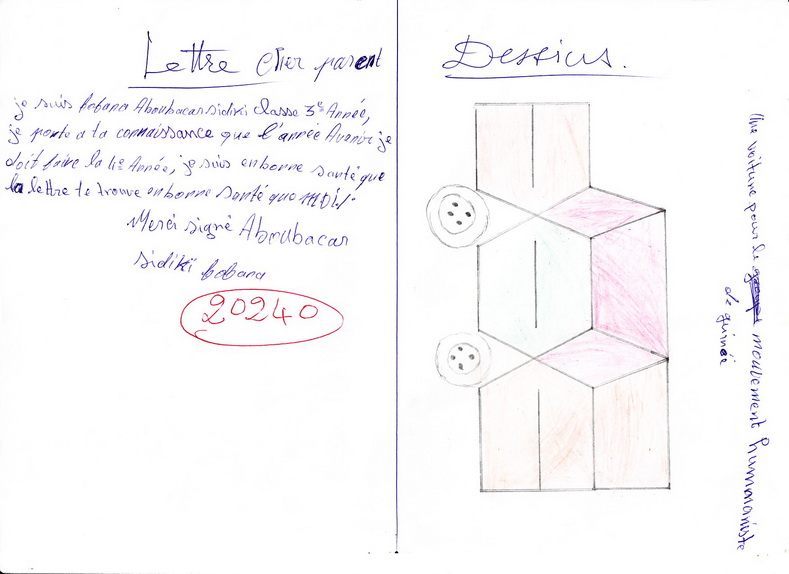 Lettre cher parent
je suis Cobana Aboubacar sidiki classe 3e Année,
je porte a ta connaissance que l'année Avenir je
doit faire la 4e Année, je suis en bonne santé que
la lettre te trouve en bonne santé que moi.
Merci signé Aboubacar
sidiki
20240
Dessins.
Une voiture pour le mouvement humaniste
de guinée